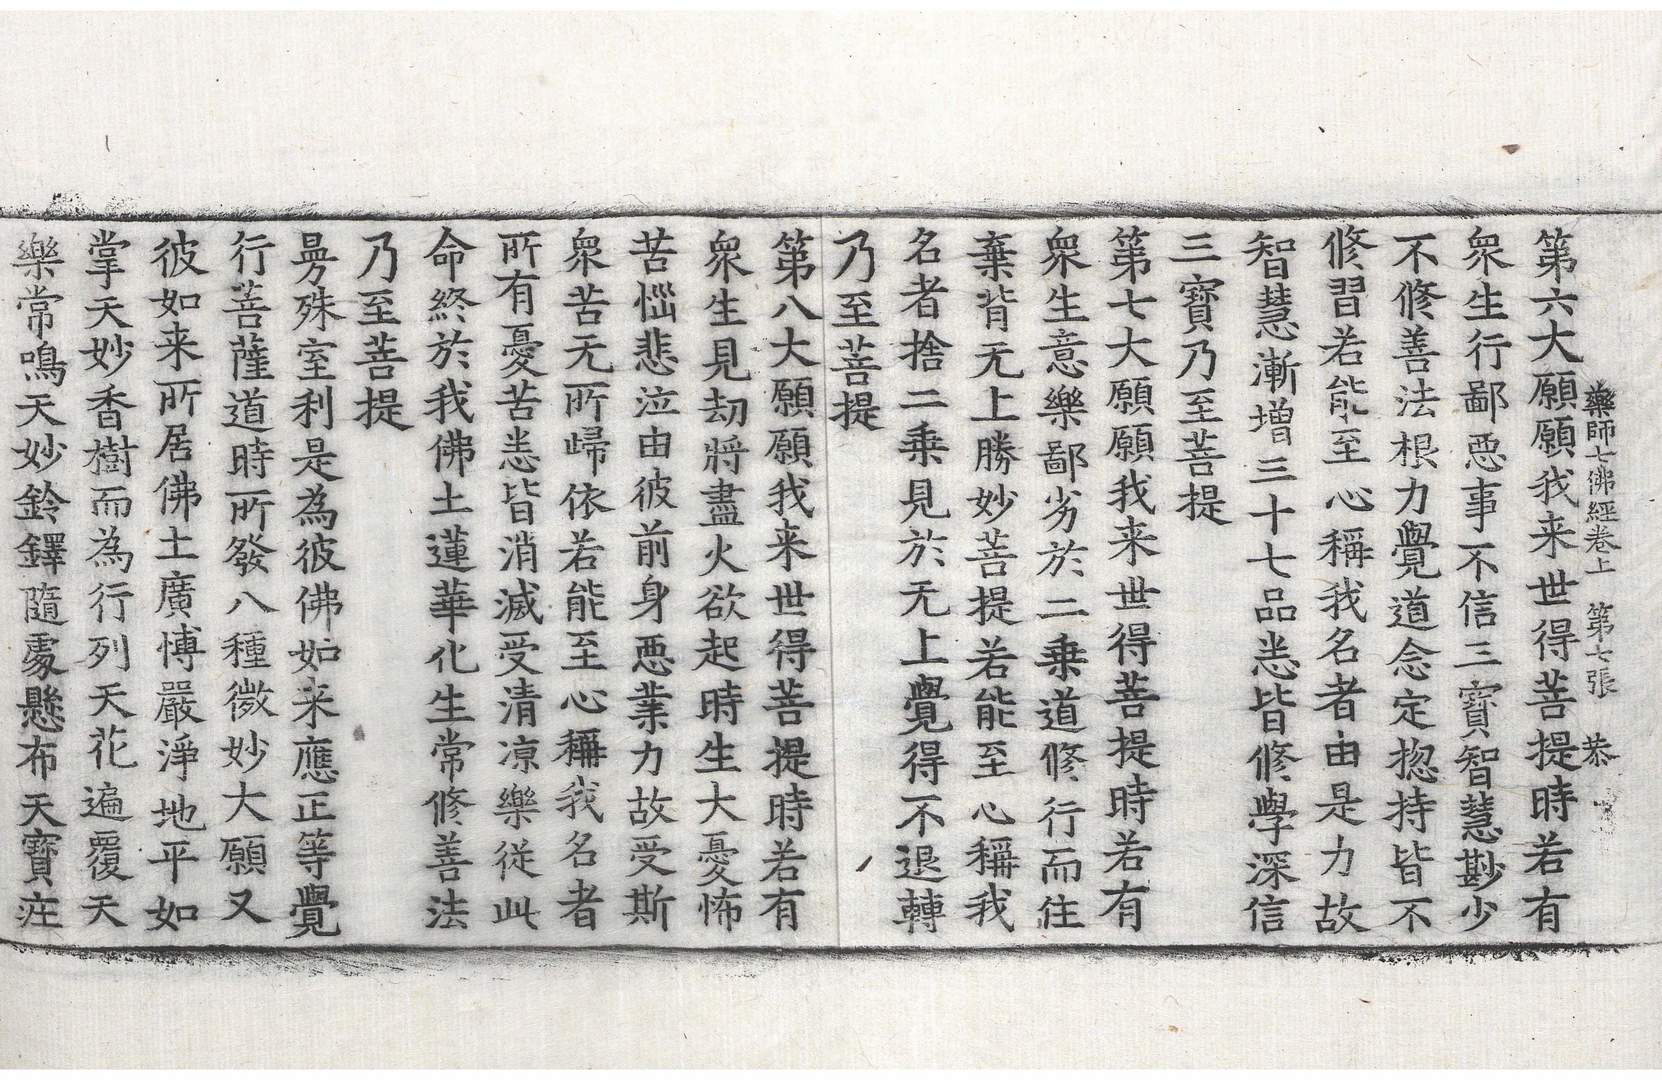 藥師七佛經卷上　第七張　恭
第六大願願我来世得菩提時若有
衆生行鄙惡事不信三寶智慧尠少
不修善法根力覺道念定揔持皆不
修習若能至心稱我名者由是力故
智慧漸增三十七品悉皆修學深信
三寶乃至菩提
第七大願願我来世得菩提時若有
衆生意樂鄙劣於二乗道修行而住
棄背无上勝妙菩提若能至心稱我
名者捨二乗見於无上覺得不退轉
乃至菩提
第八大願願我来世得菩提時若有
衆生見劫將盡火欲起時生大憂怖
苦惱悲泣由彼前身惡業力故受斯
衆苦无所歸依若能至心稱我名者
所有憂苦悉皆消滅受清凉樂従此
命終於我佛土蓮華化生常修善法
乃至菩提
曼殊室利是為彼佛如来應正等覺
行菩薩道時所發八種微妙大願又
彼如来所居佛土廣博嚴淨地平如
掌天妙香樹而為行列天花遍覆天
樂常鳴天妙鈴鐸隨處懸布天寶莊